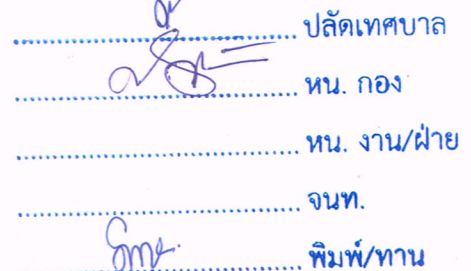 .................................................. ปลัดเทศบาล
.................................................. หน. กอง
.................................................. หน. งาน/ฝ่าย
.................................................. จนท.
.................................................. พิมพ์/ทาน